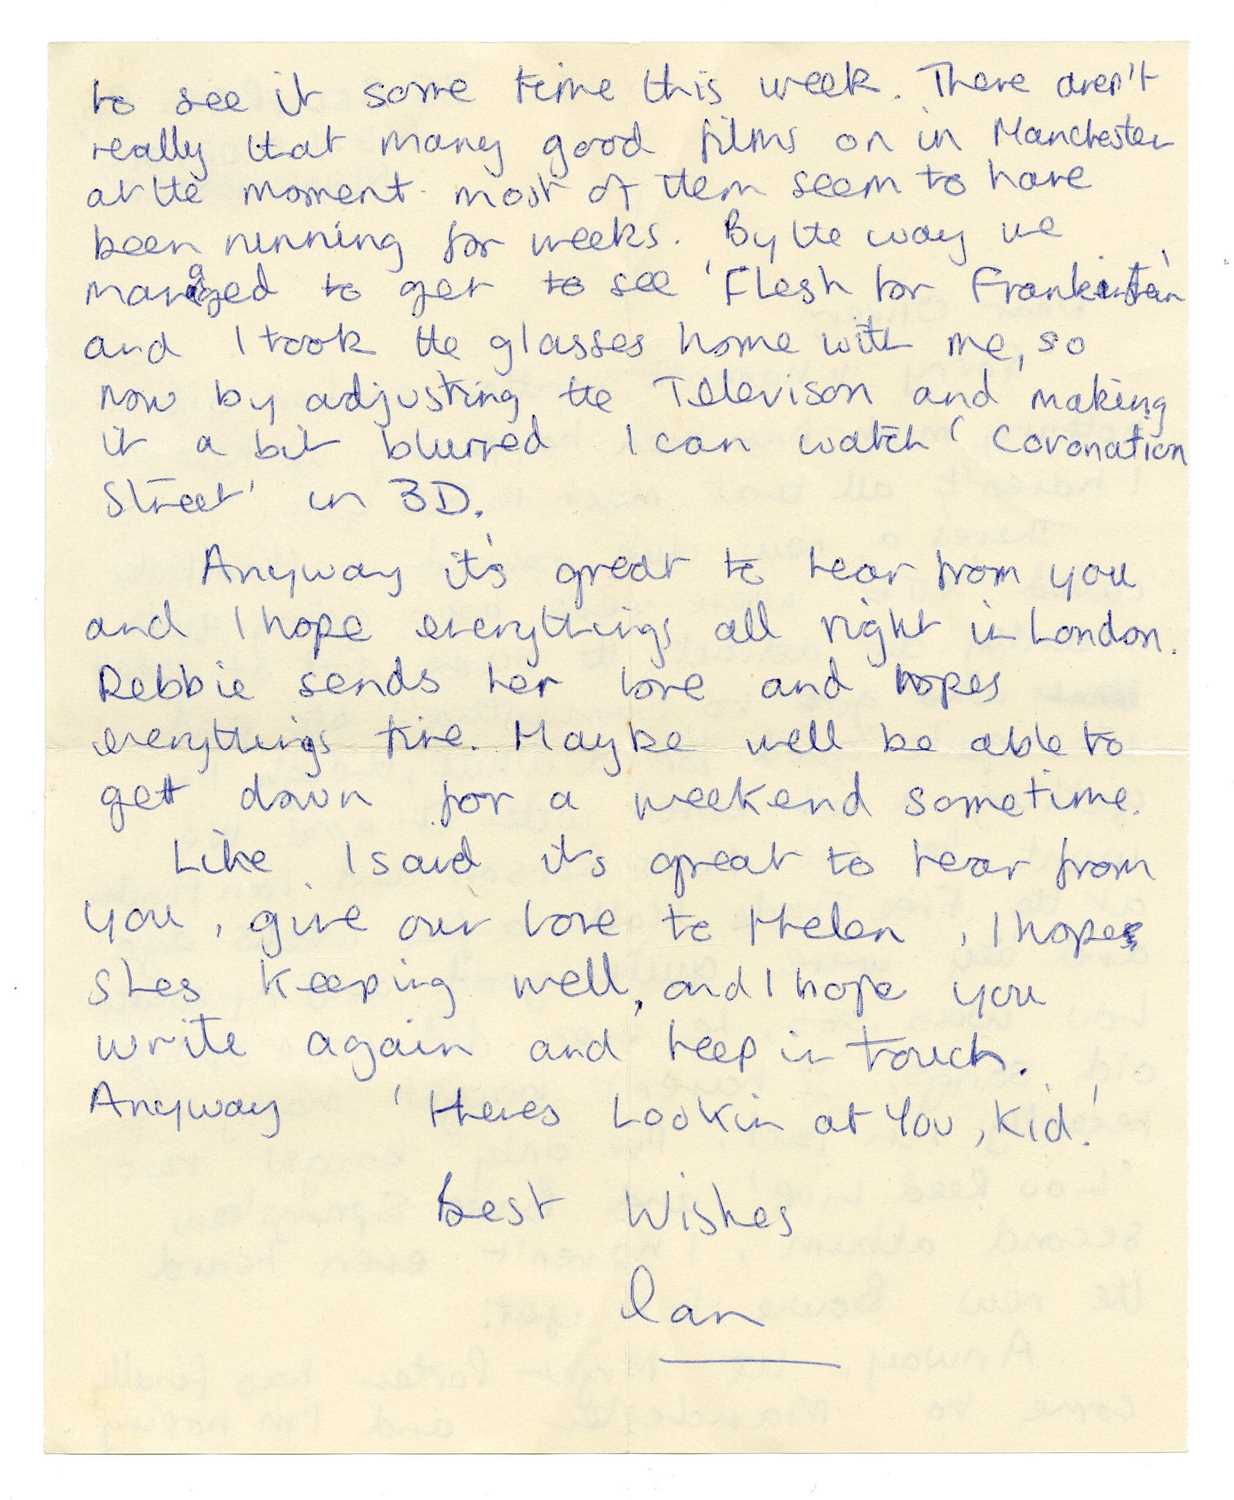 to see it some time this week. There aren't
really that many good films on in Manchester
at the moment most of them seem to have
been running for weeks. By the way we
managed to get to see 'Flesh for Frankinstein'
and I took the glasses home with me, so
now by adjusting the Televison and making
it a bit blurred I can watch 'Coronation
Street' in 3D.
Anyway it's great to hear from you
and I hope everythings all right in London.
Debbie sends her love and hopes
everythings fine. Maybe well be able to
get down for a weekend sometime.
Like I said its great to hear from
you, give our love to Helen, I hope
shes keeping well, and I hope you
write again and keep in touch.
Anyway 'Heres Lookin at You, Kid.'
Best Wishes
Ian